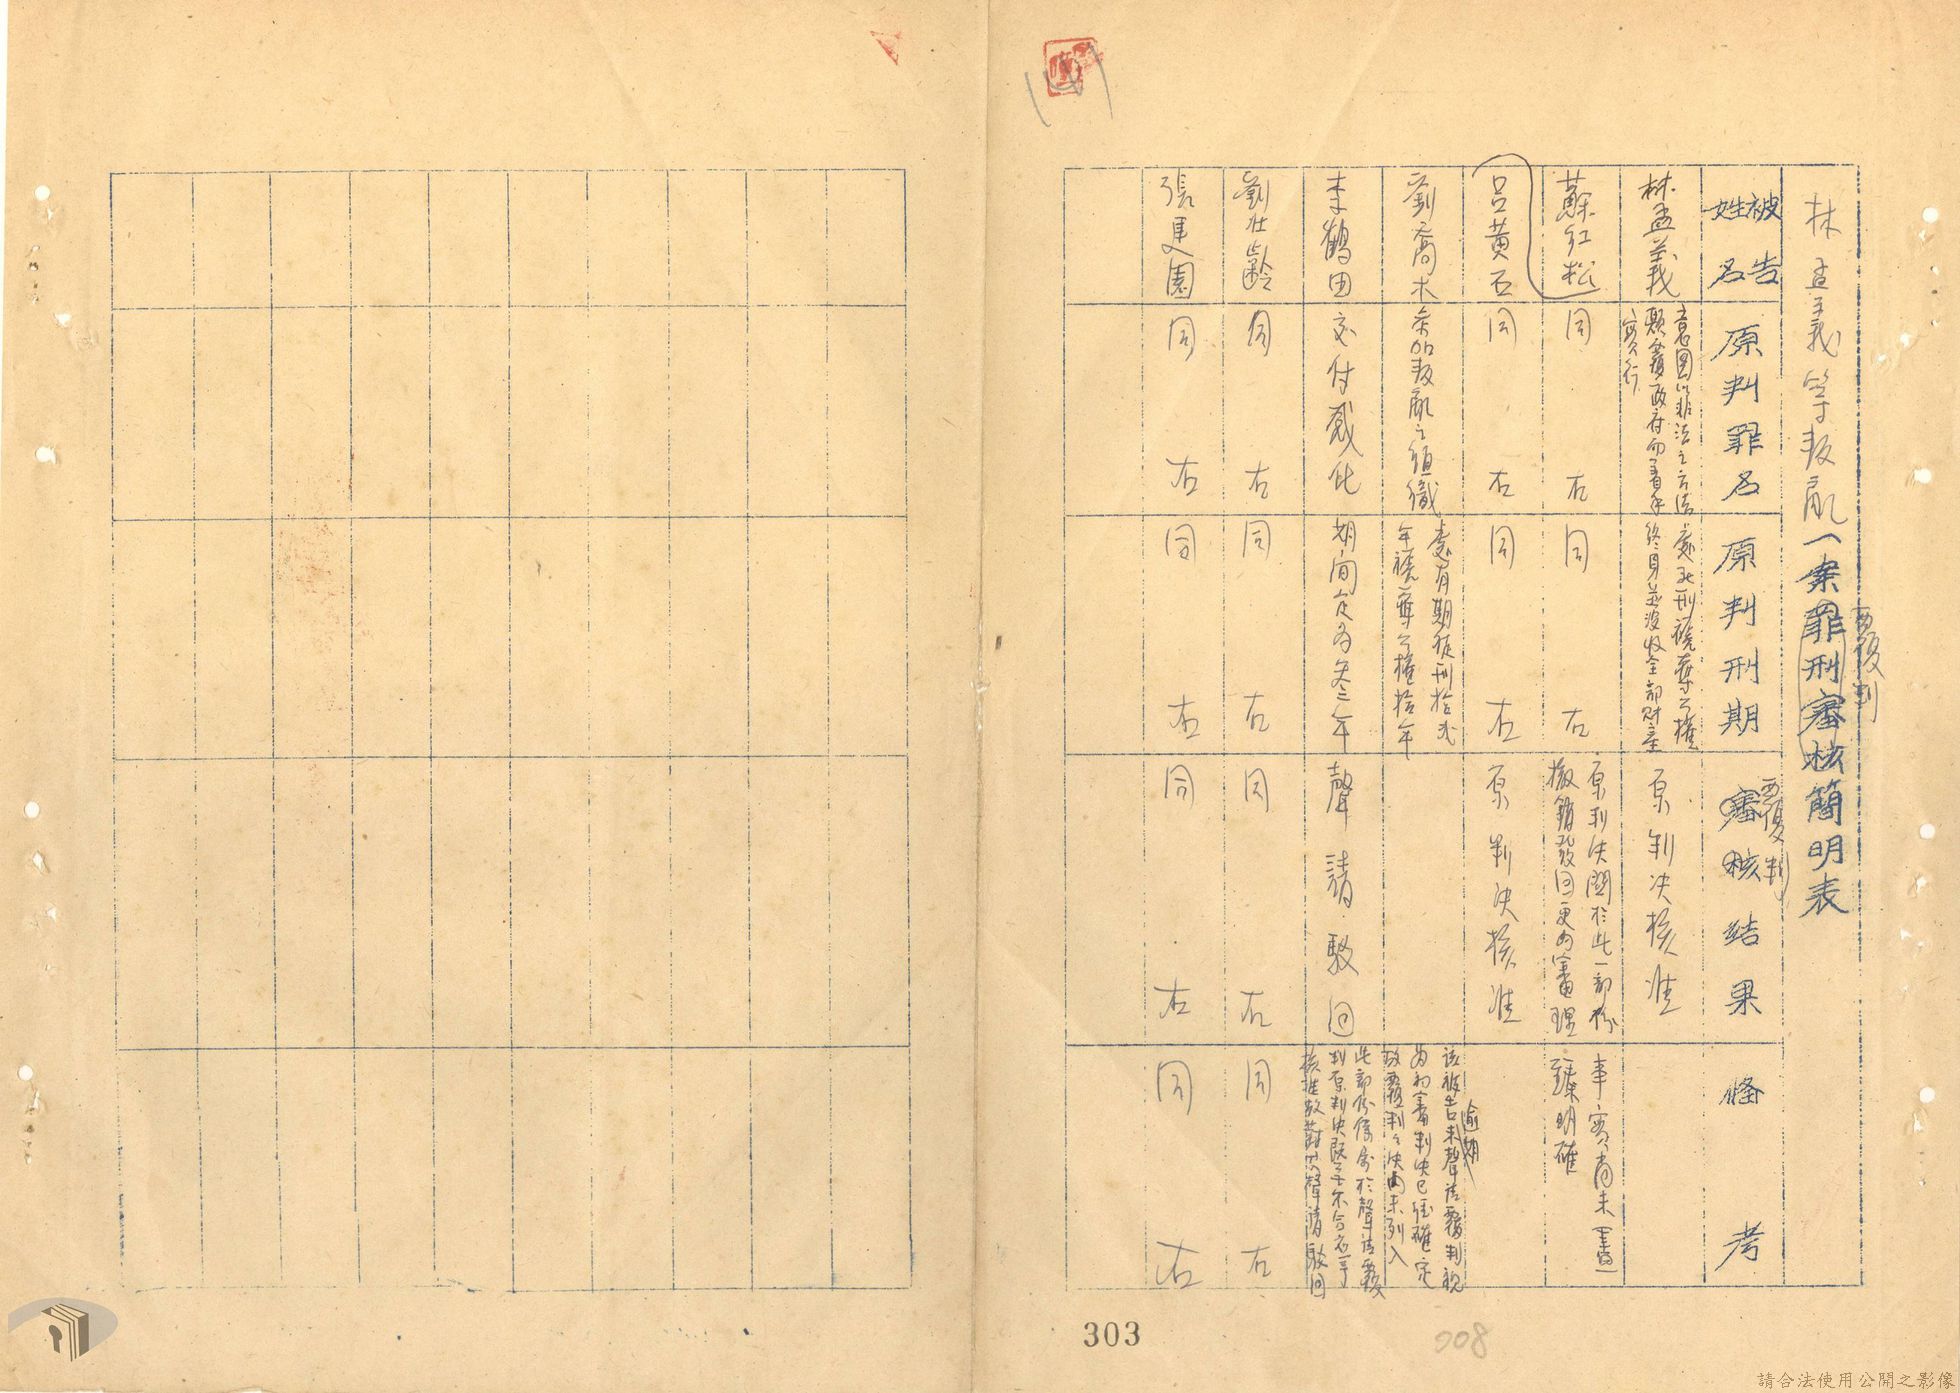 林孟義等叛亂一案罪刑審核簡明表
覆判
被告姓名
原判罪名
原判刑期
審核結果
覆判
備考
林孟義
意圖以非法之方法
顛覆政府而著手
實行
處死刑褫奪公權
終身並沒收全部財產
原判決核准
蘇紅松
同右
同右
原判決關於此一部份
撤銷發回更為審理
事實尚未
臻明確
呂黃石
同右
同右
原判決核准
劉喬木
參加叛亂之組織
處有期徒刑拾貳
年褫奪公權拾年
逾期
該被告未聲請覆判視
為初審判決已經確定
故覆判之決內未列入
李鶴田
交付感化
期間定為叁年
聲請駁回
此部份係屬於聲請覆
判原判決既無不合應予
核准故對其聲請駁回
劉壯齡
同右
同右
同右
同右
張更園
同右
同右
同右
同右
303
908
請合法使用公開之影像